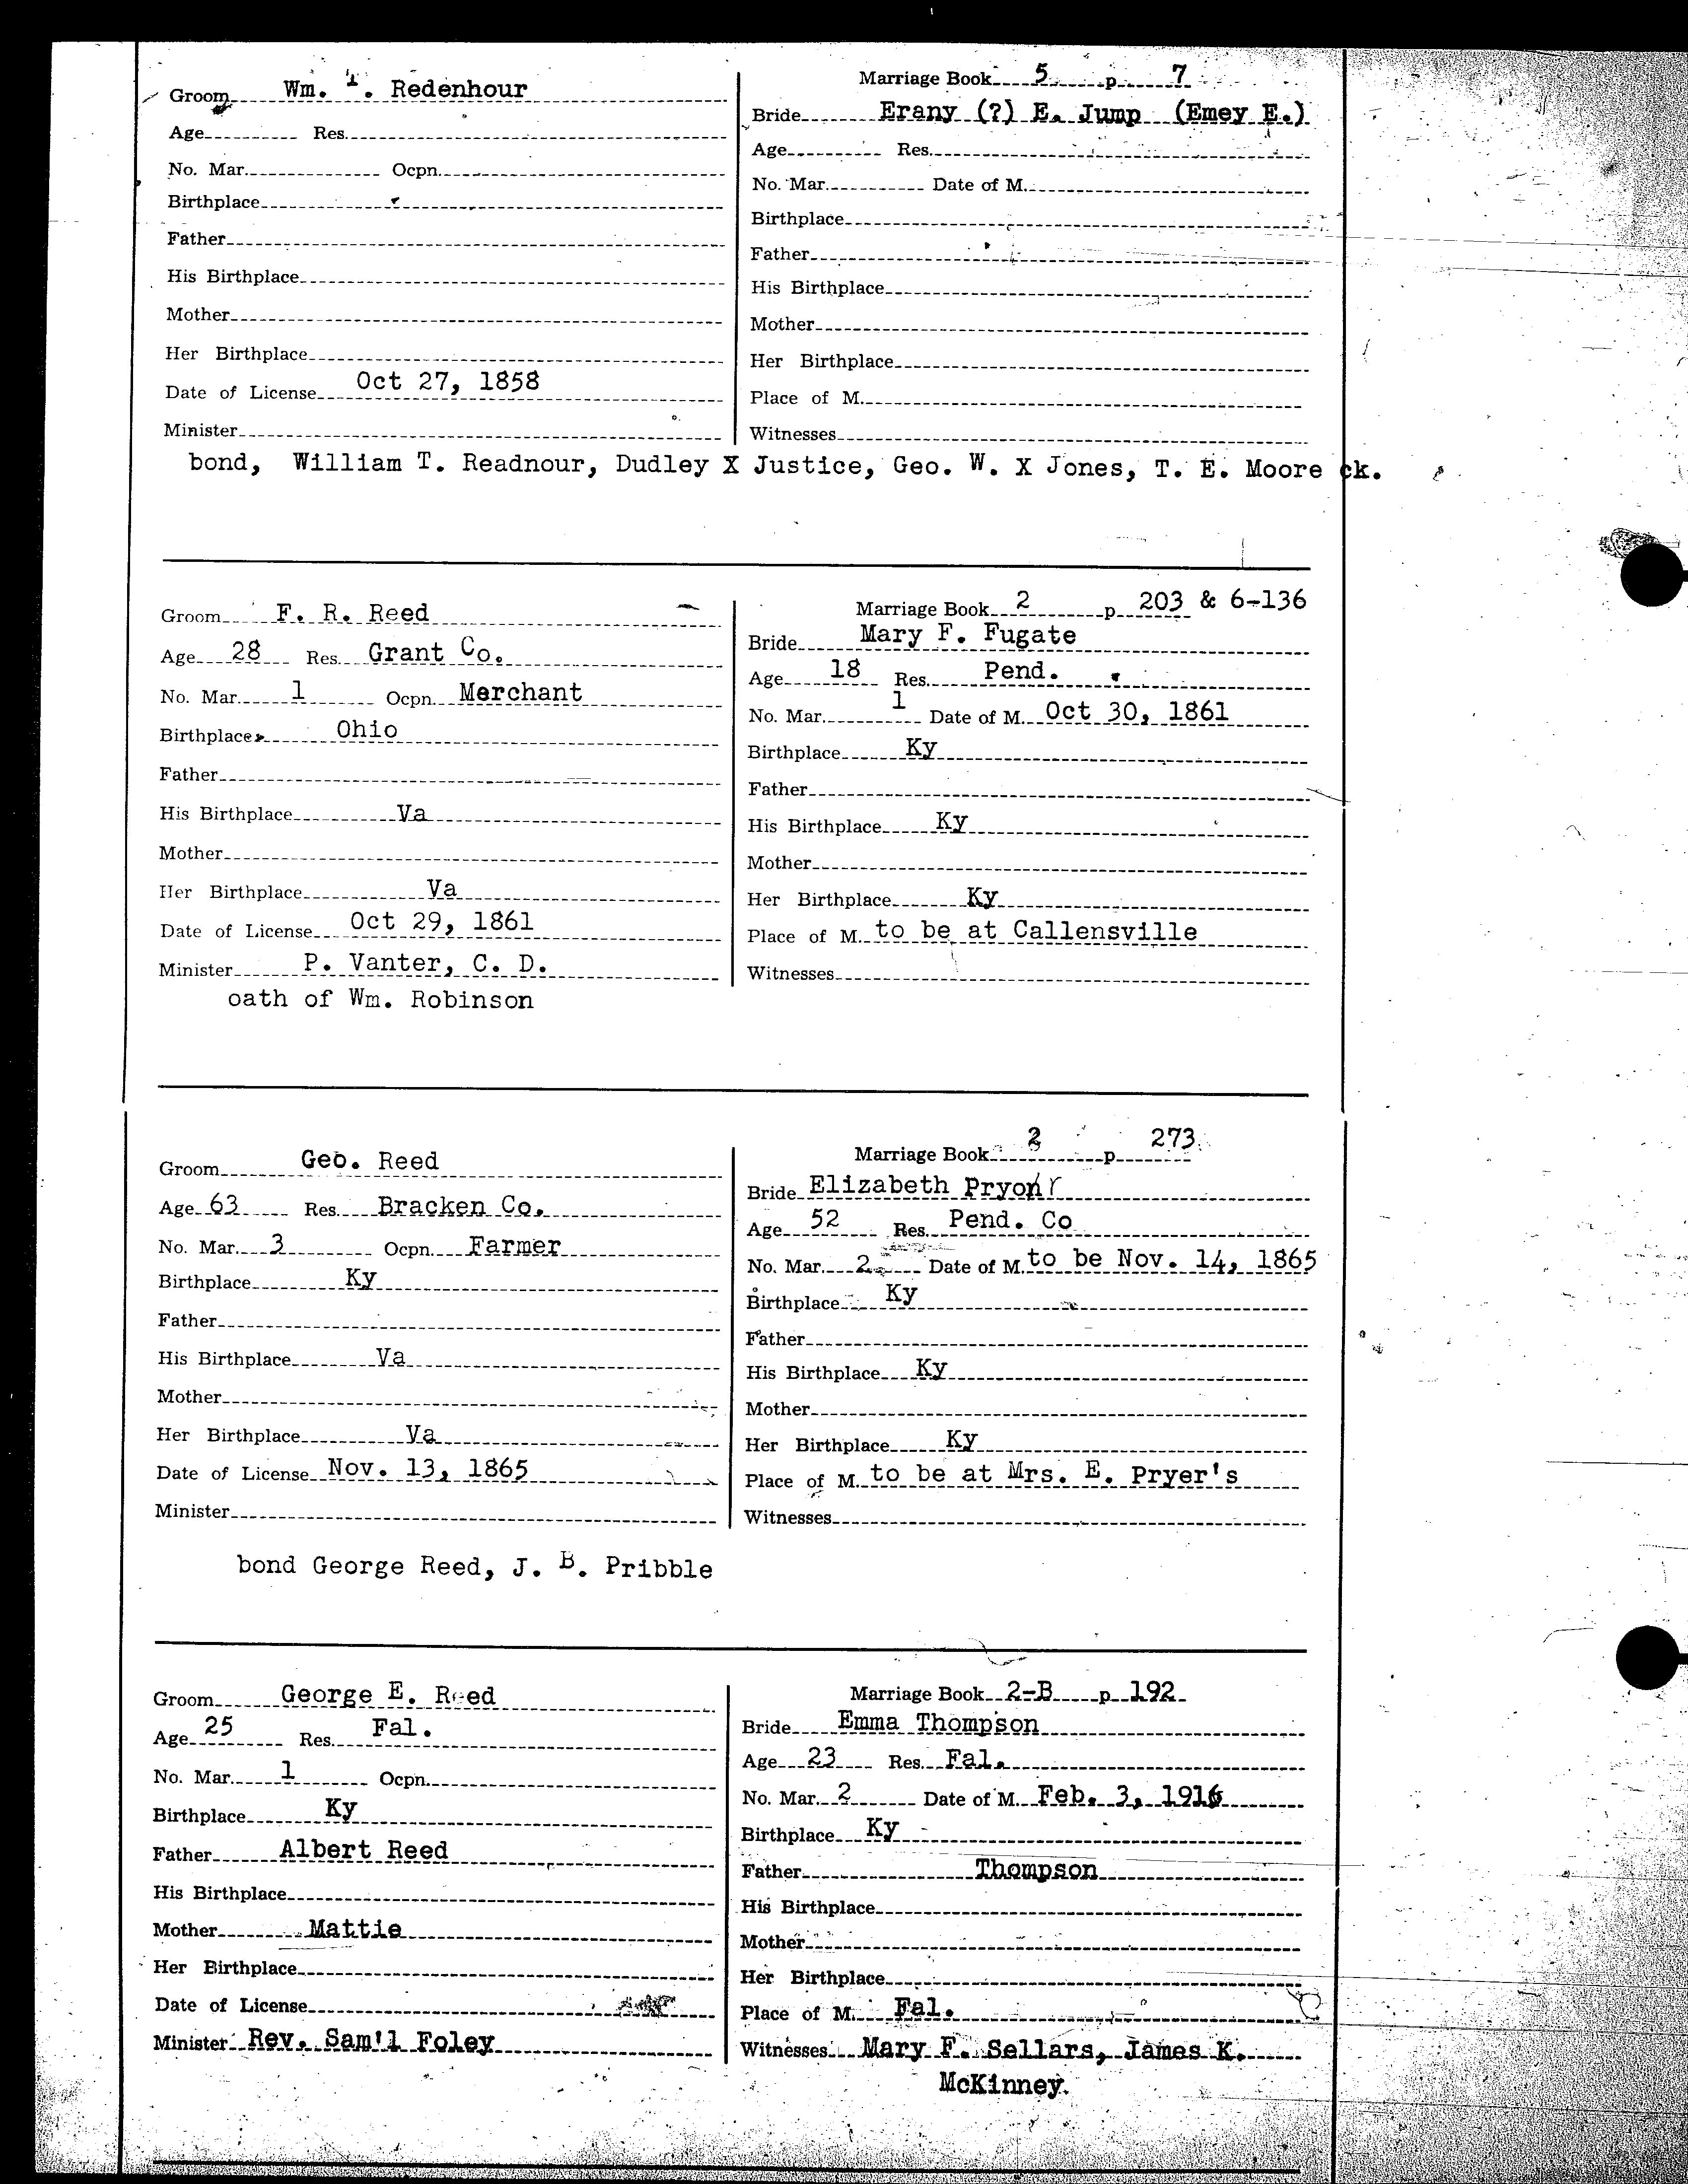 Groom Wm. T. Redenhour
Age Res.
No. Mar. Ocpn.
Birthplace
Father
His Birthplace
Mother
Her Birthplace
Date of License Oct 27, 1858
Minister
Marriage Book 5 p. 7
Bride Erany (?) E. Jump (Emey E.)
Age Res.
No. Mar. Date of M.
Birthplace
Father
His Birthplace
Mother
Her Birthplace
Place of M.
Witnesses
bond, William T. Readnour, Dudley X Justice, Geo. W. X Jones, T. E. Moore ck.
Groom F. R. Reed
Age 28 Res. Grant Co.
No. Mar. 1 Ocpn. Merchant
Birthplace Ohio
Father
His Birthplace Va
Mother
Her Birthplace Va
Date of License Oct 29, 1861
Minister P. Vanter, C. D.
oath of Wm. Robinson
Marriage Book 2 p. 203 & 6-136
Bride Mary F. Fugate
Age 18 Res. Pend.
No. Mar. 1 Date of M. Oct 30, 1861
Birthplace Ky
Father
His Birthplace Ky
Mother
Her Birthplace Ky
Place of M. to be at Callensville
Witnesses
Groom Geo. Reed
Age 63 Res. Bracken Co.
No. Mar. 3 Ocpn. Farmer
Birthplace Ky
Father
His Birthplace Va
Mother
Her Birthplace Va
Date of License Nov. 13, 1865
Minister
Marriage Book 2 p. 273
Bride Elizabeth Pryor
Age 52 Res. Pend. Co
No. Mar. 2 Date of M. to be Nov. 14, 1865
Birthplace Ky
Father
His Birthplace Ky
Mother
Her Birthplace Ky
Place of M. to be at Mrs. E. Pryer's
Witnesses
bond George Reed, J. B. Pribble
Groom George E. Reed
Age 25 Res. Fal.
No. Mar. 1 Ocpn.
Birthplace Ky
Father Albert Reed
His Birthplace
Mother Mattie
Her Birthplace
Date of License
Minister Rev. Sam'l Foley
Marriage Book 2-B p 192
Bride Emma Thompson
Age 23 Res. Fal.
No. Mar. 2 Date of M. Feb. 3, 1916
Birthplace Ky
Father Thompson
His Birthplace
Mother
Her Birthplace
Place of M. Fal.
Witnesses Mary F. Sellars, James K.
McKinney.